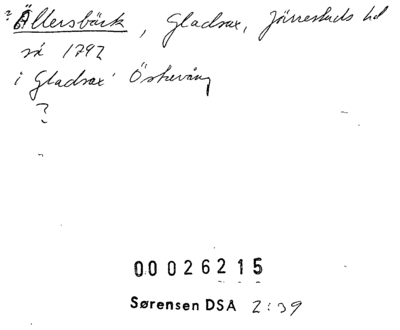 ? Ällersbäck, Gladsax, Järrestads hd
så 1792
i Gladsax' Östervång
?
00026215
Sørensen DSA 2:39